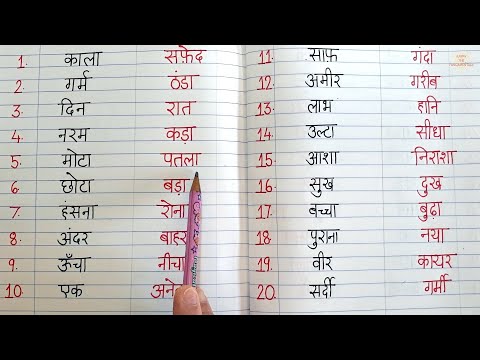 1. काला सफ़ेद
2. गर्म ठंडा
3. दिन रात
4. नरम कड़ा
5. मोटा पतला
6. छोटा बड़ा
7. हंसना रोना
8. अंदर बाहर
9. ऊँचा नीचा
10. एक
11. साफ़ गंदा
12. अमीर गरीब
13. लाभ हानि
14. उल्टा सीधा
15. आशा निराशा
16. सुख दुख
17. बच्चा बुढ़ा
18. पुराना नया
19. वीर कायर
20. सर्दी गर्मी